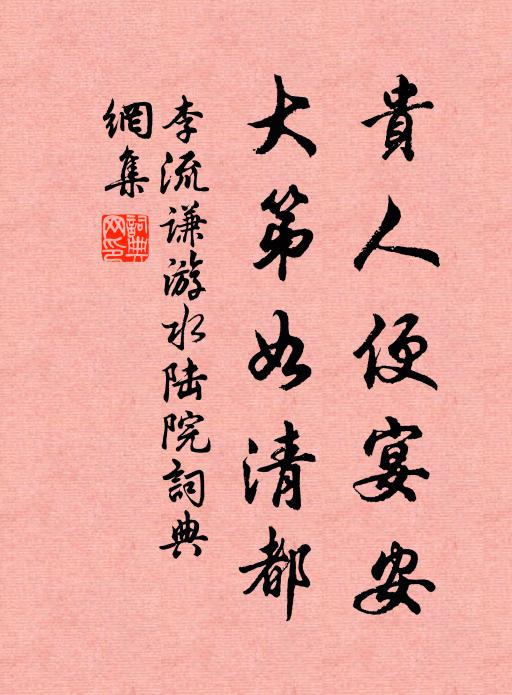 貴人便宴安
大第如清都
李流谦游水陆院詞典
網集
詞典網印